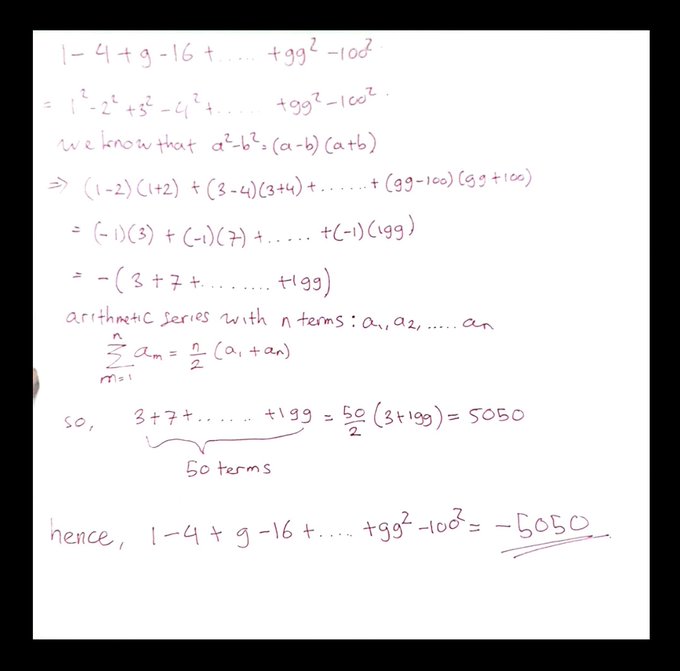 1 - 4 + 9 - 16 + ..... + 99² - 100²
= 1² - 2² + 3² - 4² + ..... + 99² - 100².
we know that a² - b² = (a - b) (a + b)
⇒ (1-2)(1+2) + (3-4)(3+4) + ...... + (99-100)(99+100)
= (-1)(3) + (-1)(7) + ..... + (-1)(199)
= - (3 + 7 + ........ + 199)
arithmetic series with n terms : a₁, a₂, ..... an
n
∑ am = n/2 (a₁ + an)
m=1
so, 3 + 7 + ....... + 199 = 50/2 (3 + 199) = 5050
50 terms
hence, 1 - 4 + 9 - 16 + .... + 99² - 100² = -5050